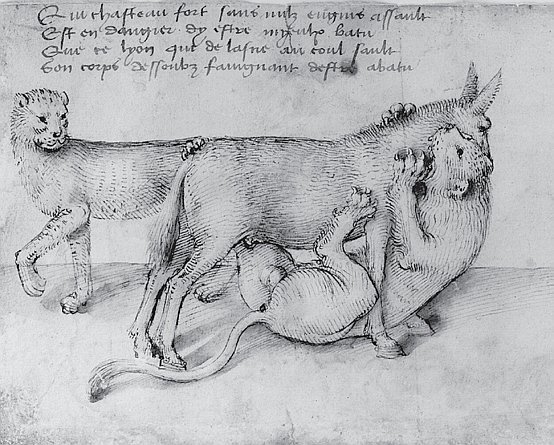 Qui chasteau fort sans nulz engins assault
Est en dangier dy estre batu
Que ce lyon que de lasne au coul sault
Son corps dessoubz faingnant destre abatu